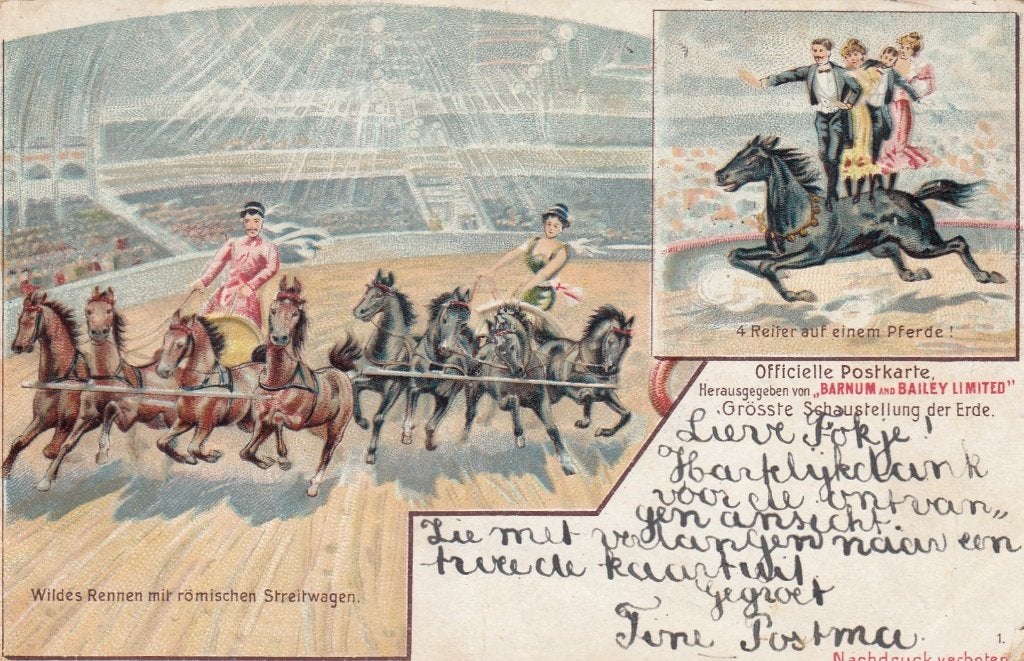 4 Reiter auf einem Pferde!
Officielle Postkarte,
Herausgegeben von „BARNUM AND BAILEY LIMITED"
Grösste Schaustellung der Erde.
Lieve Fokje!
Hartelijk dank
voor de ontvan„
gen ansicht.
Zie met verlangen naar een
tweede kaart uit,
Gegroet
Tine Postma
Wildes Rennen mit römischen Streitwagen.
1.
Nachdruck verboten